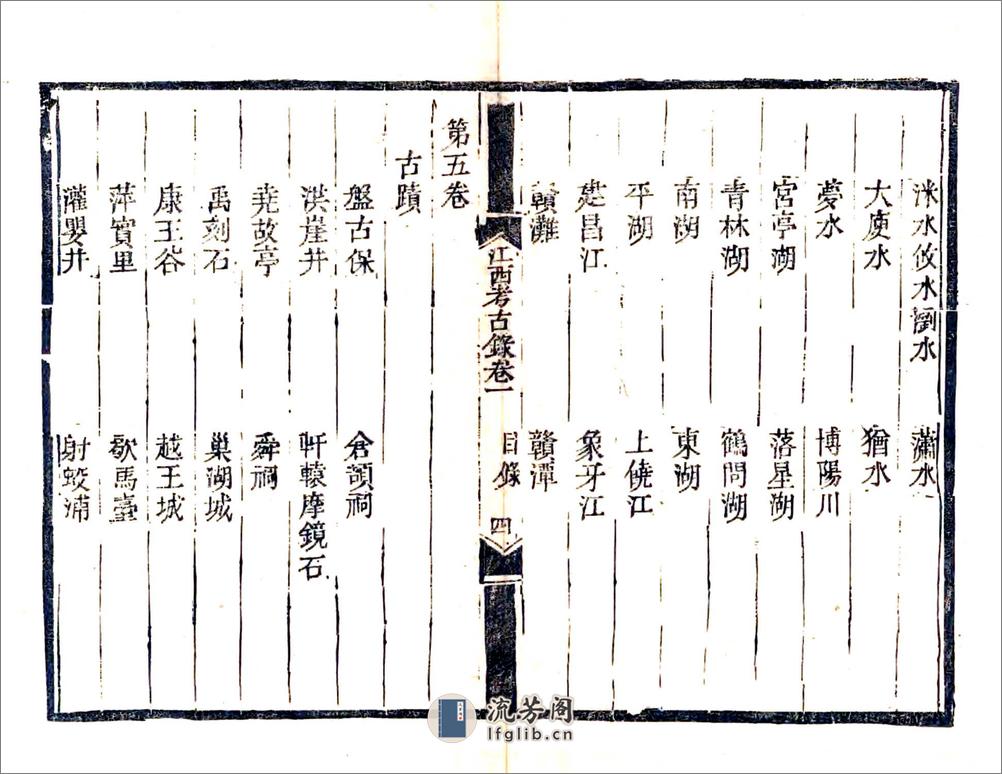 洣水攸水瀏水　瀟水
大庾水　猶水
夢水　博陽川
宮亭湖　落星湖
青林湖　鶴問湖
南湖　東湖
平湖　上僥江
建昌江　象牙江
贑灘　贑潭
江西考古錄卷一　目錄　四
第五卷
古蹟
盤古保　倉頡祠
洪崖井　軒轅摩鏡石
堯故亭　舜祠
禹刻石　巢湖城
康王谷　越王城
萍實里　歇馬臺
灌嬰井　射蛟浦
流芳阁
lfglib.cn